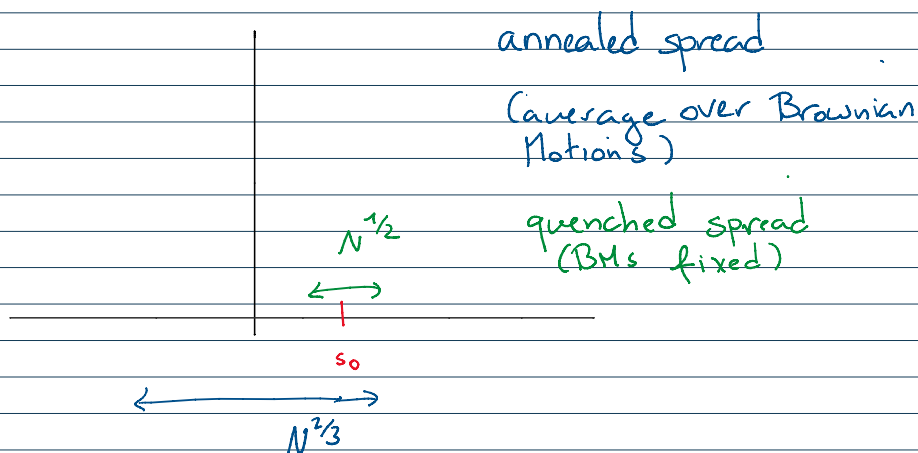 annealed spread
(average over Brownian
Motions)
quenched spread
(BMs fixed)
N^1/2
s₀
N^2/3